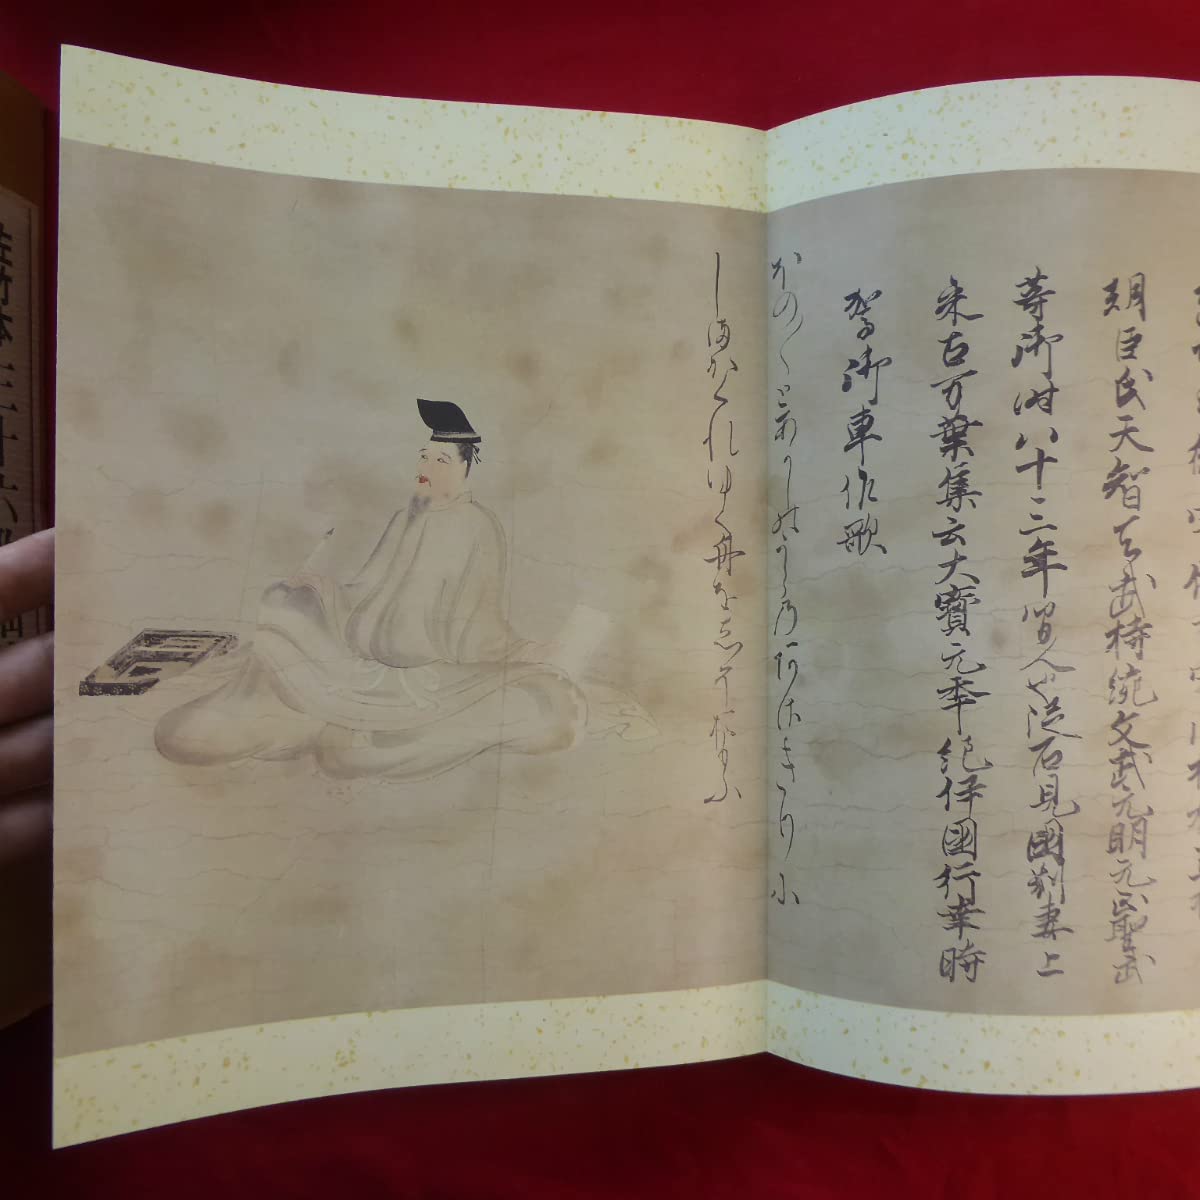 朝臣氏天智天武持統文武元明元正聖武
等御时八十三年間人也従石見國別妻上
来古万葉集云大寳元年紀伊國行幸時
駕御車作歌
ほの〱とあかしのうらのあさきりに
しまかくれゆく舟をしそおもふ
佐竹本三十六歌